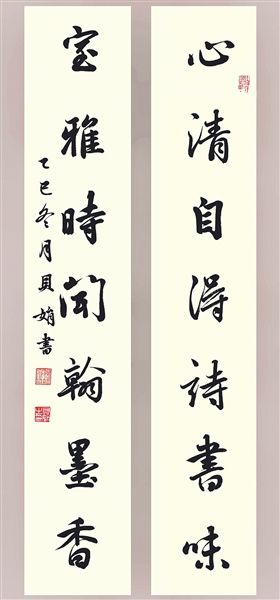 心清自得詩書味
室雅時聞翰墨香
乙巳冬月貝娟書